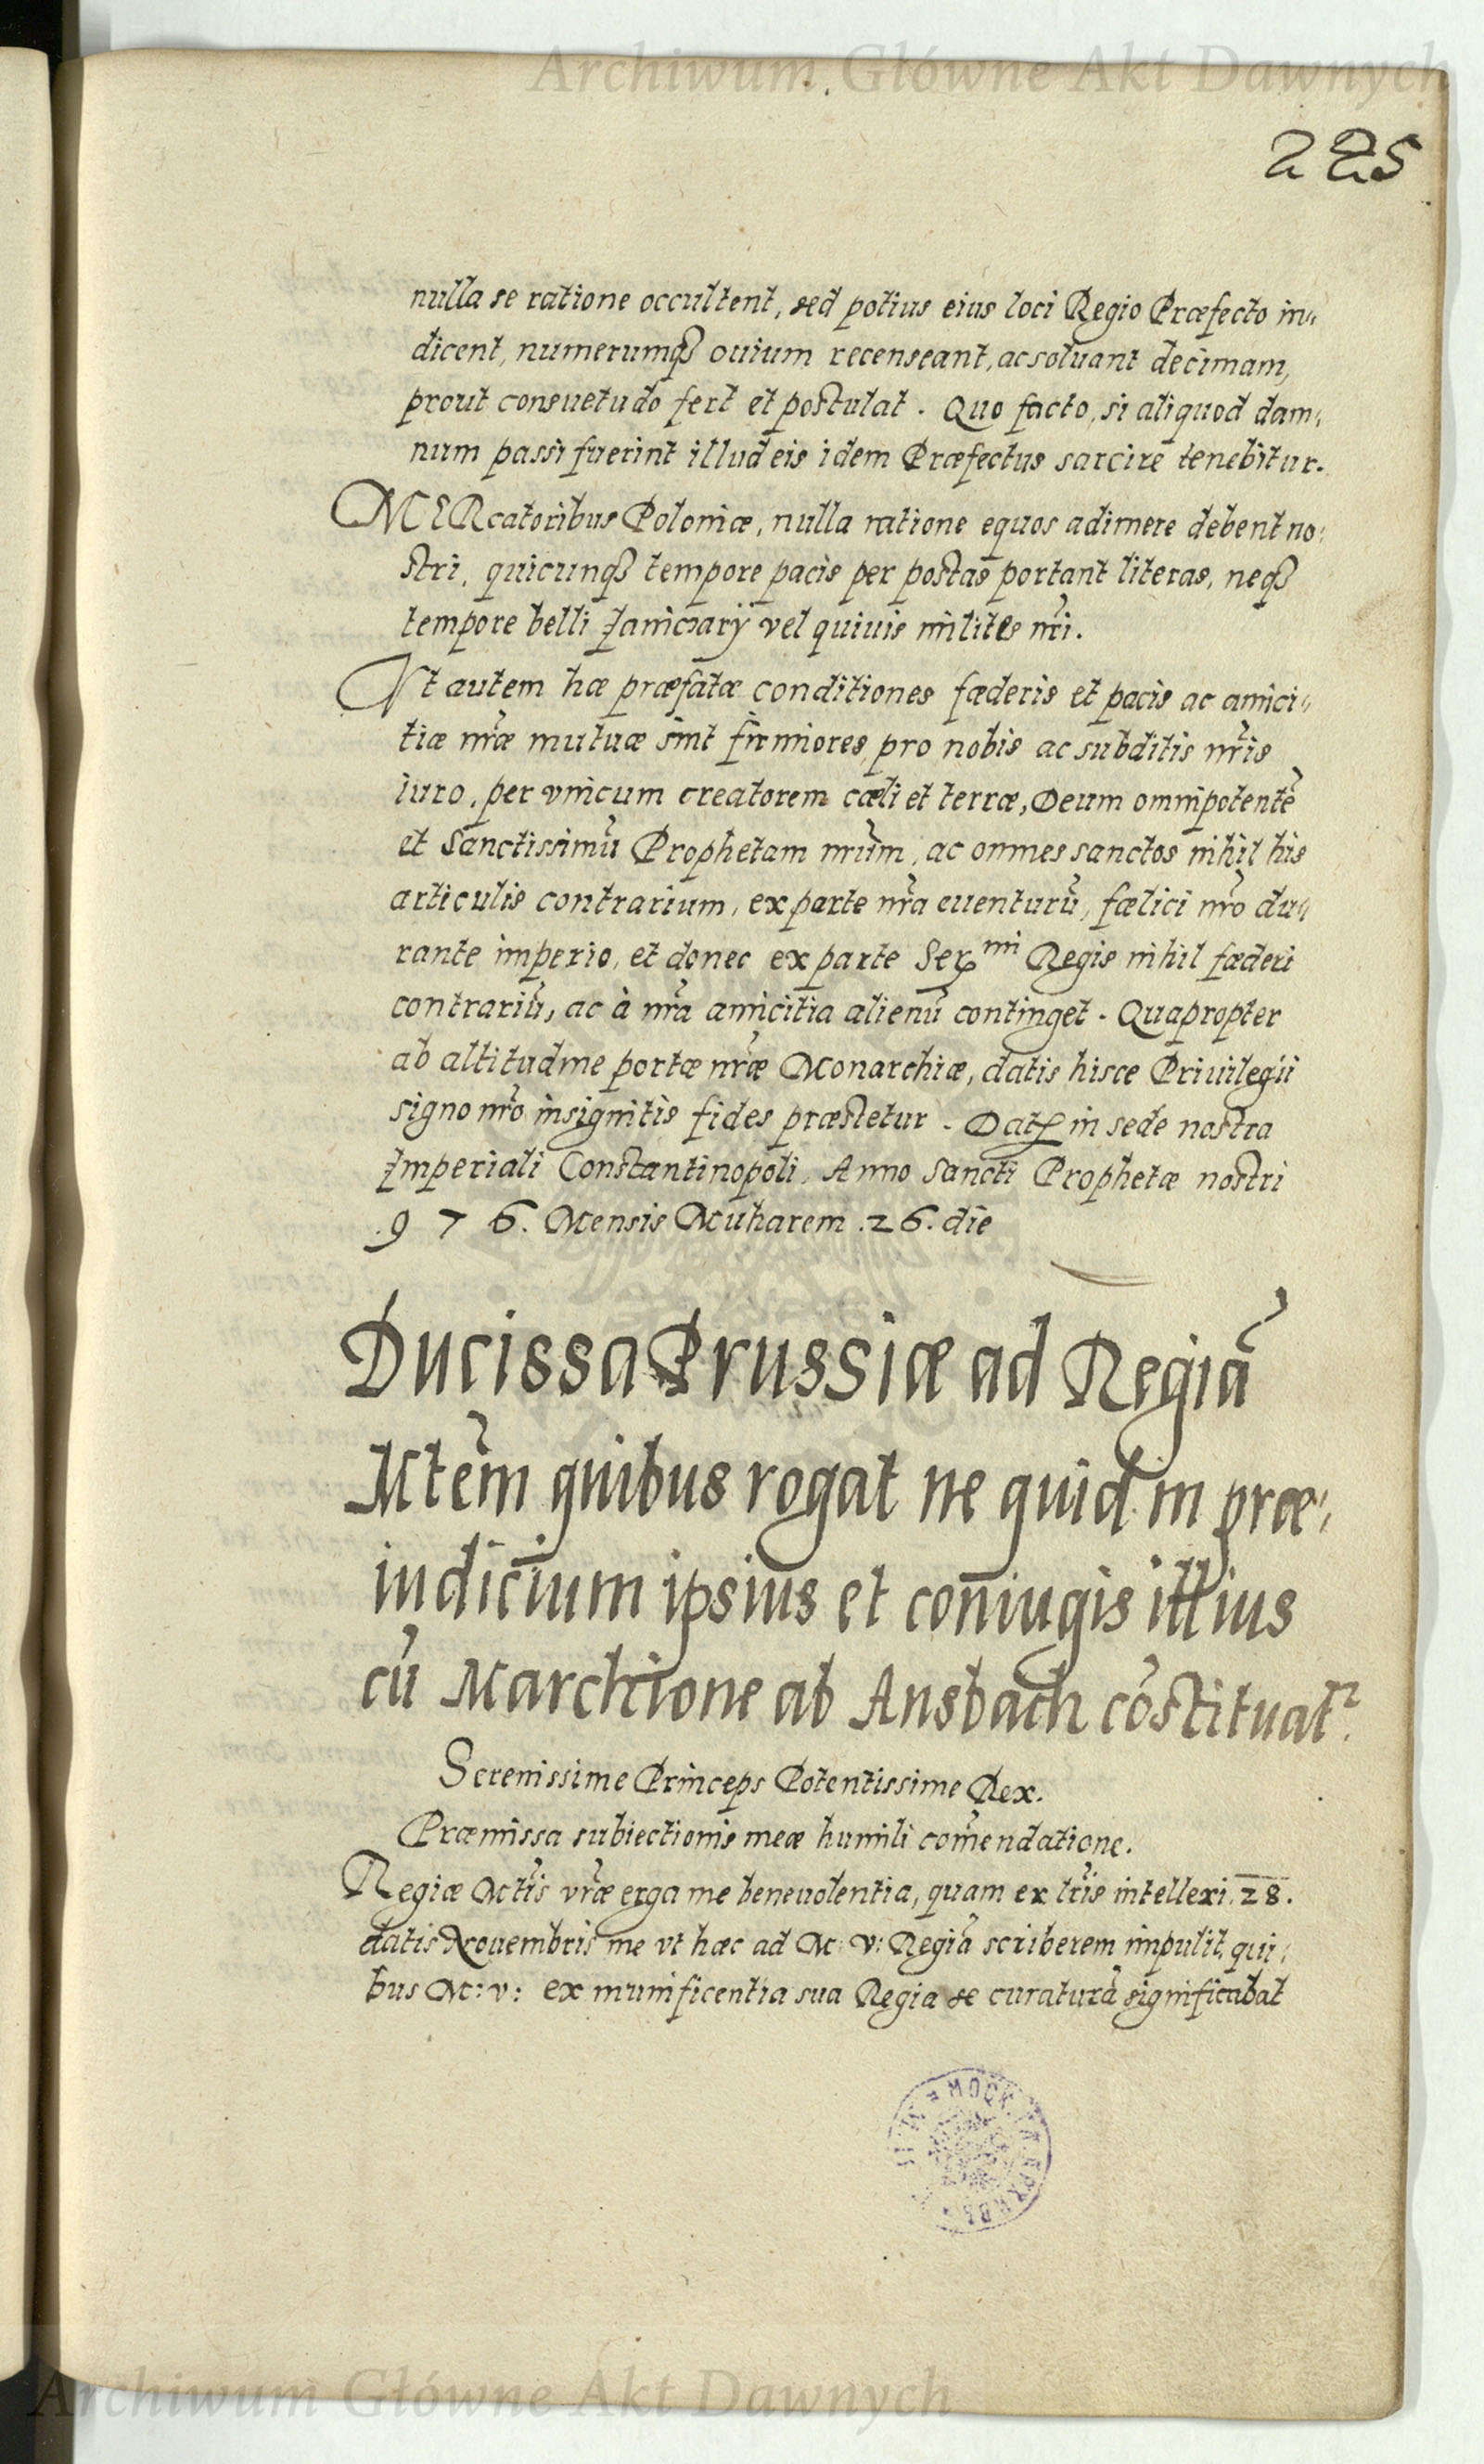 Archiwum Główne Akt Dawnych
225
nulla se ratione occultent, sed potius eius loci Regio Præfecto in„
dicent, numerumq₃ ouium recenseant, ac soluant decimam,
prout consuetudo fert et postulat. Quo facto, si aliquod dam„
num passi fuerint illud eis idem Præfectus sarcire tenebitur.
MERcatoribus Poloniæ, nulla ratione equos adimere debent no„
stri, quicunq₃ tempore pacis per postas portant literas, neq₃
tempore belli Janiczarÿ vel quiuis milites nr̃i.
Vt autem hæ præfatæ conditiones fæderis et pacis ac amici„
tiæ nr̃æ mutuæ sint firmiores, pro nobis ac subditis nr̃is
iuro, per vnicum creatorem cæli et terræ, Deum omnipotentẽ
et Sanctissimũ Prophetam nr̃um, ac omnes sanctos nihil his
articulis contrarium, ex parte nr̃a euenturũ, fælici nr̃o du„
rante imperio, et donec ex parte Ser^mi Regis nihil fæderi
contrariũ, ac à nr̃a amicitia alienũ continget. Quapropter
ab altitudine portæ nr̃æ Monarchiæ, datis hisce Priuilegii
signo nr̃o insignitis fides præstetur. Dat in sede nostra
Imperiali Constantinopoli, Anno Sancti Prophetæ nostri
.976. Mensis Muharem .26. die
Ducissa Prussiæ ad Regiã
Mtẽm quibus rogat ne quid in præ„
iudicium ipsius et coniugis illius
cũ Marchione ab Ansbach cõstituat^r.
Serenissime Princeps Potentissime Rex.
Præmissa subiectionis meæ humili com̃endatione.
Regiæ Mtis̃ vr̃æ erga me beneuolentia, quam ex lr̃is intellexi .28.
datis Nouembris me vt hæc ad M: v: Regiã scriberem impulit, qui„
bus M: v: ex munificentia sua Regia se curaturã significabat
Archiwum Główne Akt Dawnych